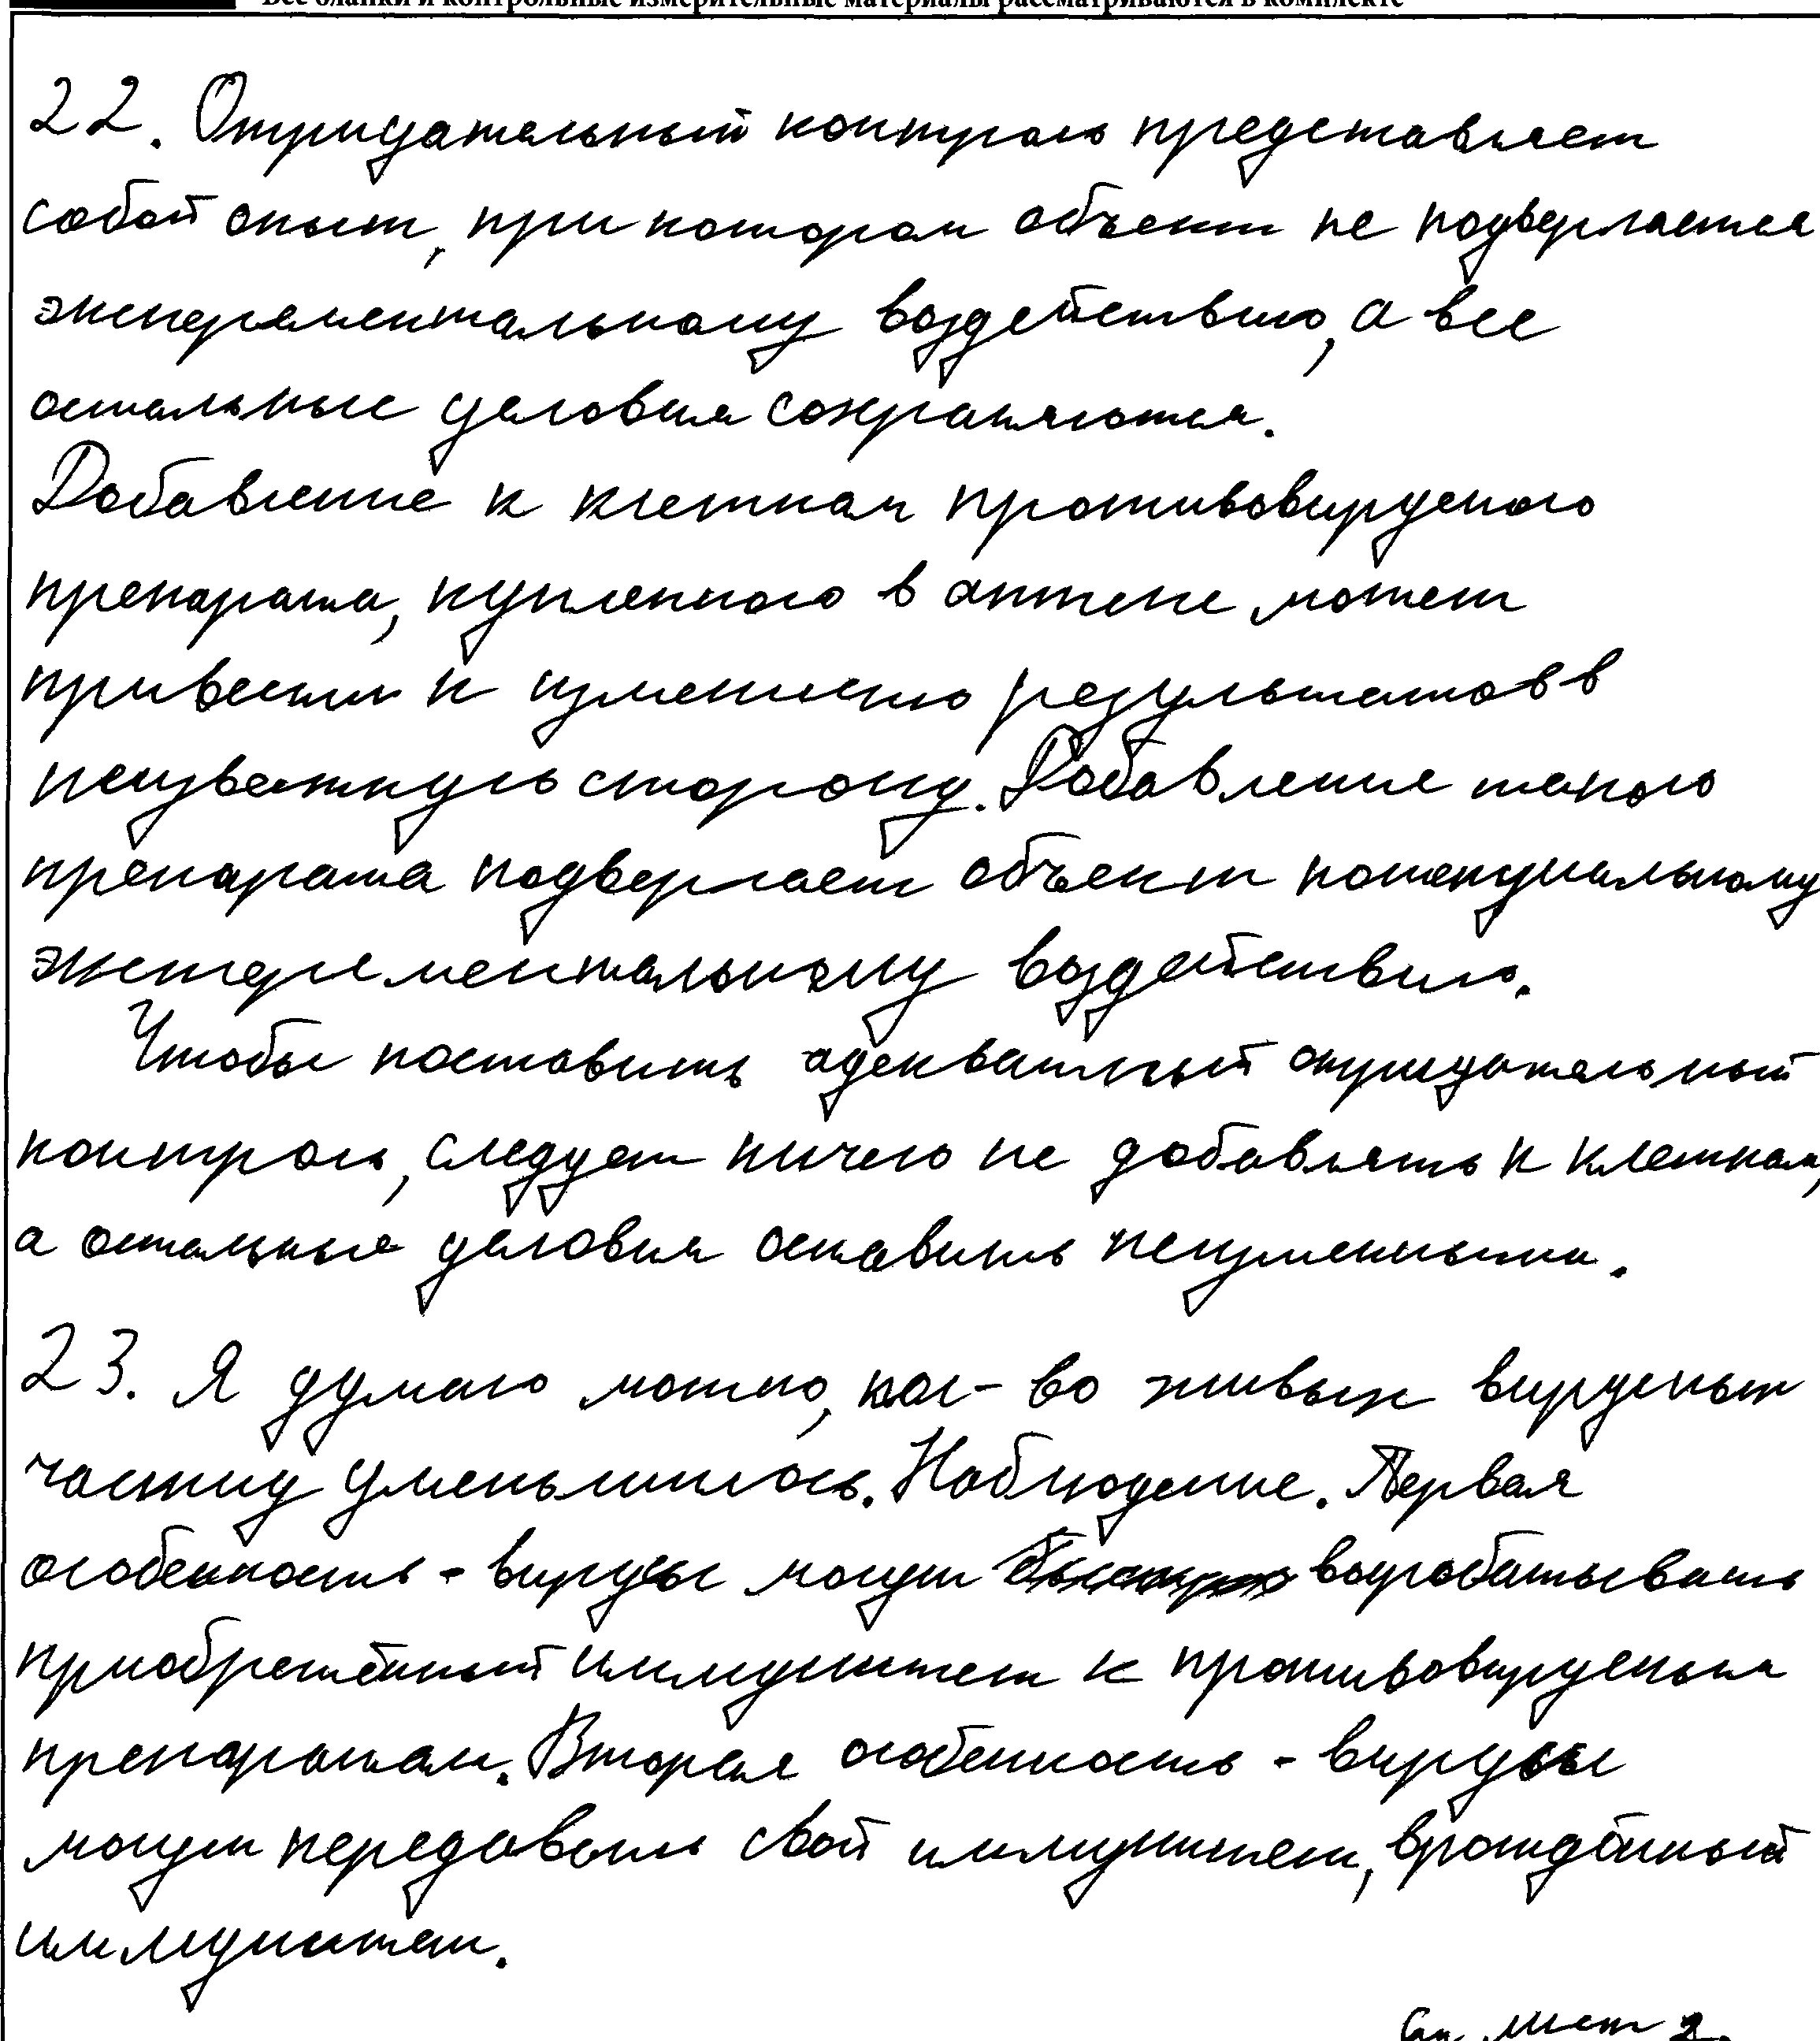 Все бланки и контрольные измерительные материалы рассматриваются в комплекте
22. Отрицательный контроль представляет
собой опыт, при котором объект не подвергается
эксперементальному воздействию, а все
остальные условия сохраняются.
Добавление к клеткам противовирусного
препарата, купленного в аптеке может
привести к изменению результатов в
неизвестную сторону. Добавление такого
препарата подвергает объект потенциальному
экспериментальному воздействию.
Чтобы поставить адекватный отрицательный
контроль, следует ничего не добавлять к клеткам,
а остальные условия оставить неизменными.
23. Я думаю можно, кол-во живых вирусных
частиц уменьшилось. Наблюдение. Первая
особенность - вирусы могут быстро вырабатывать
приобретённый иммунитет к противовирусным
препаратам. Вторая особенность - вирусы
могут передавать свой иммунитет, врождённый
иммунитет.
См. лист 2.